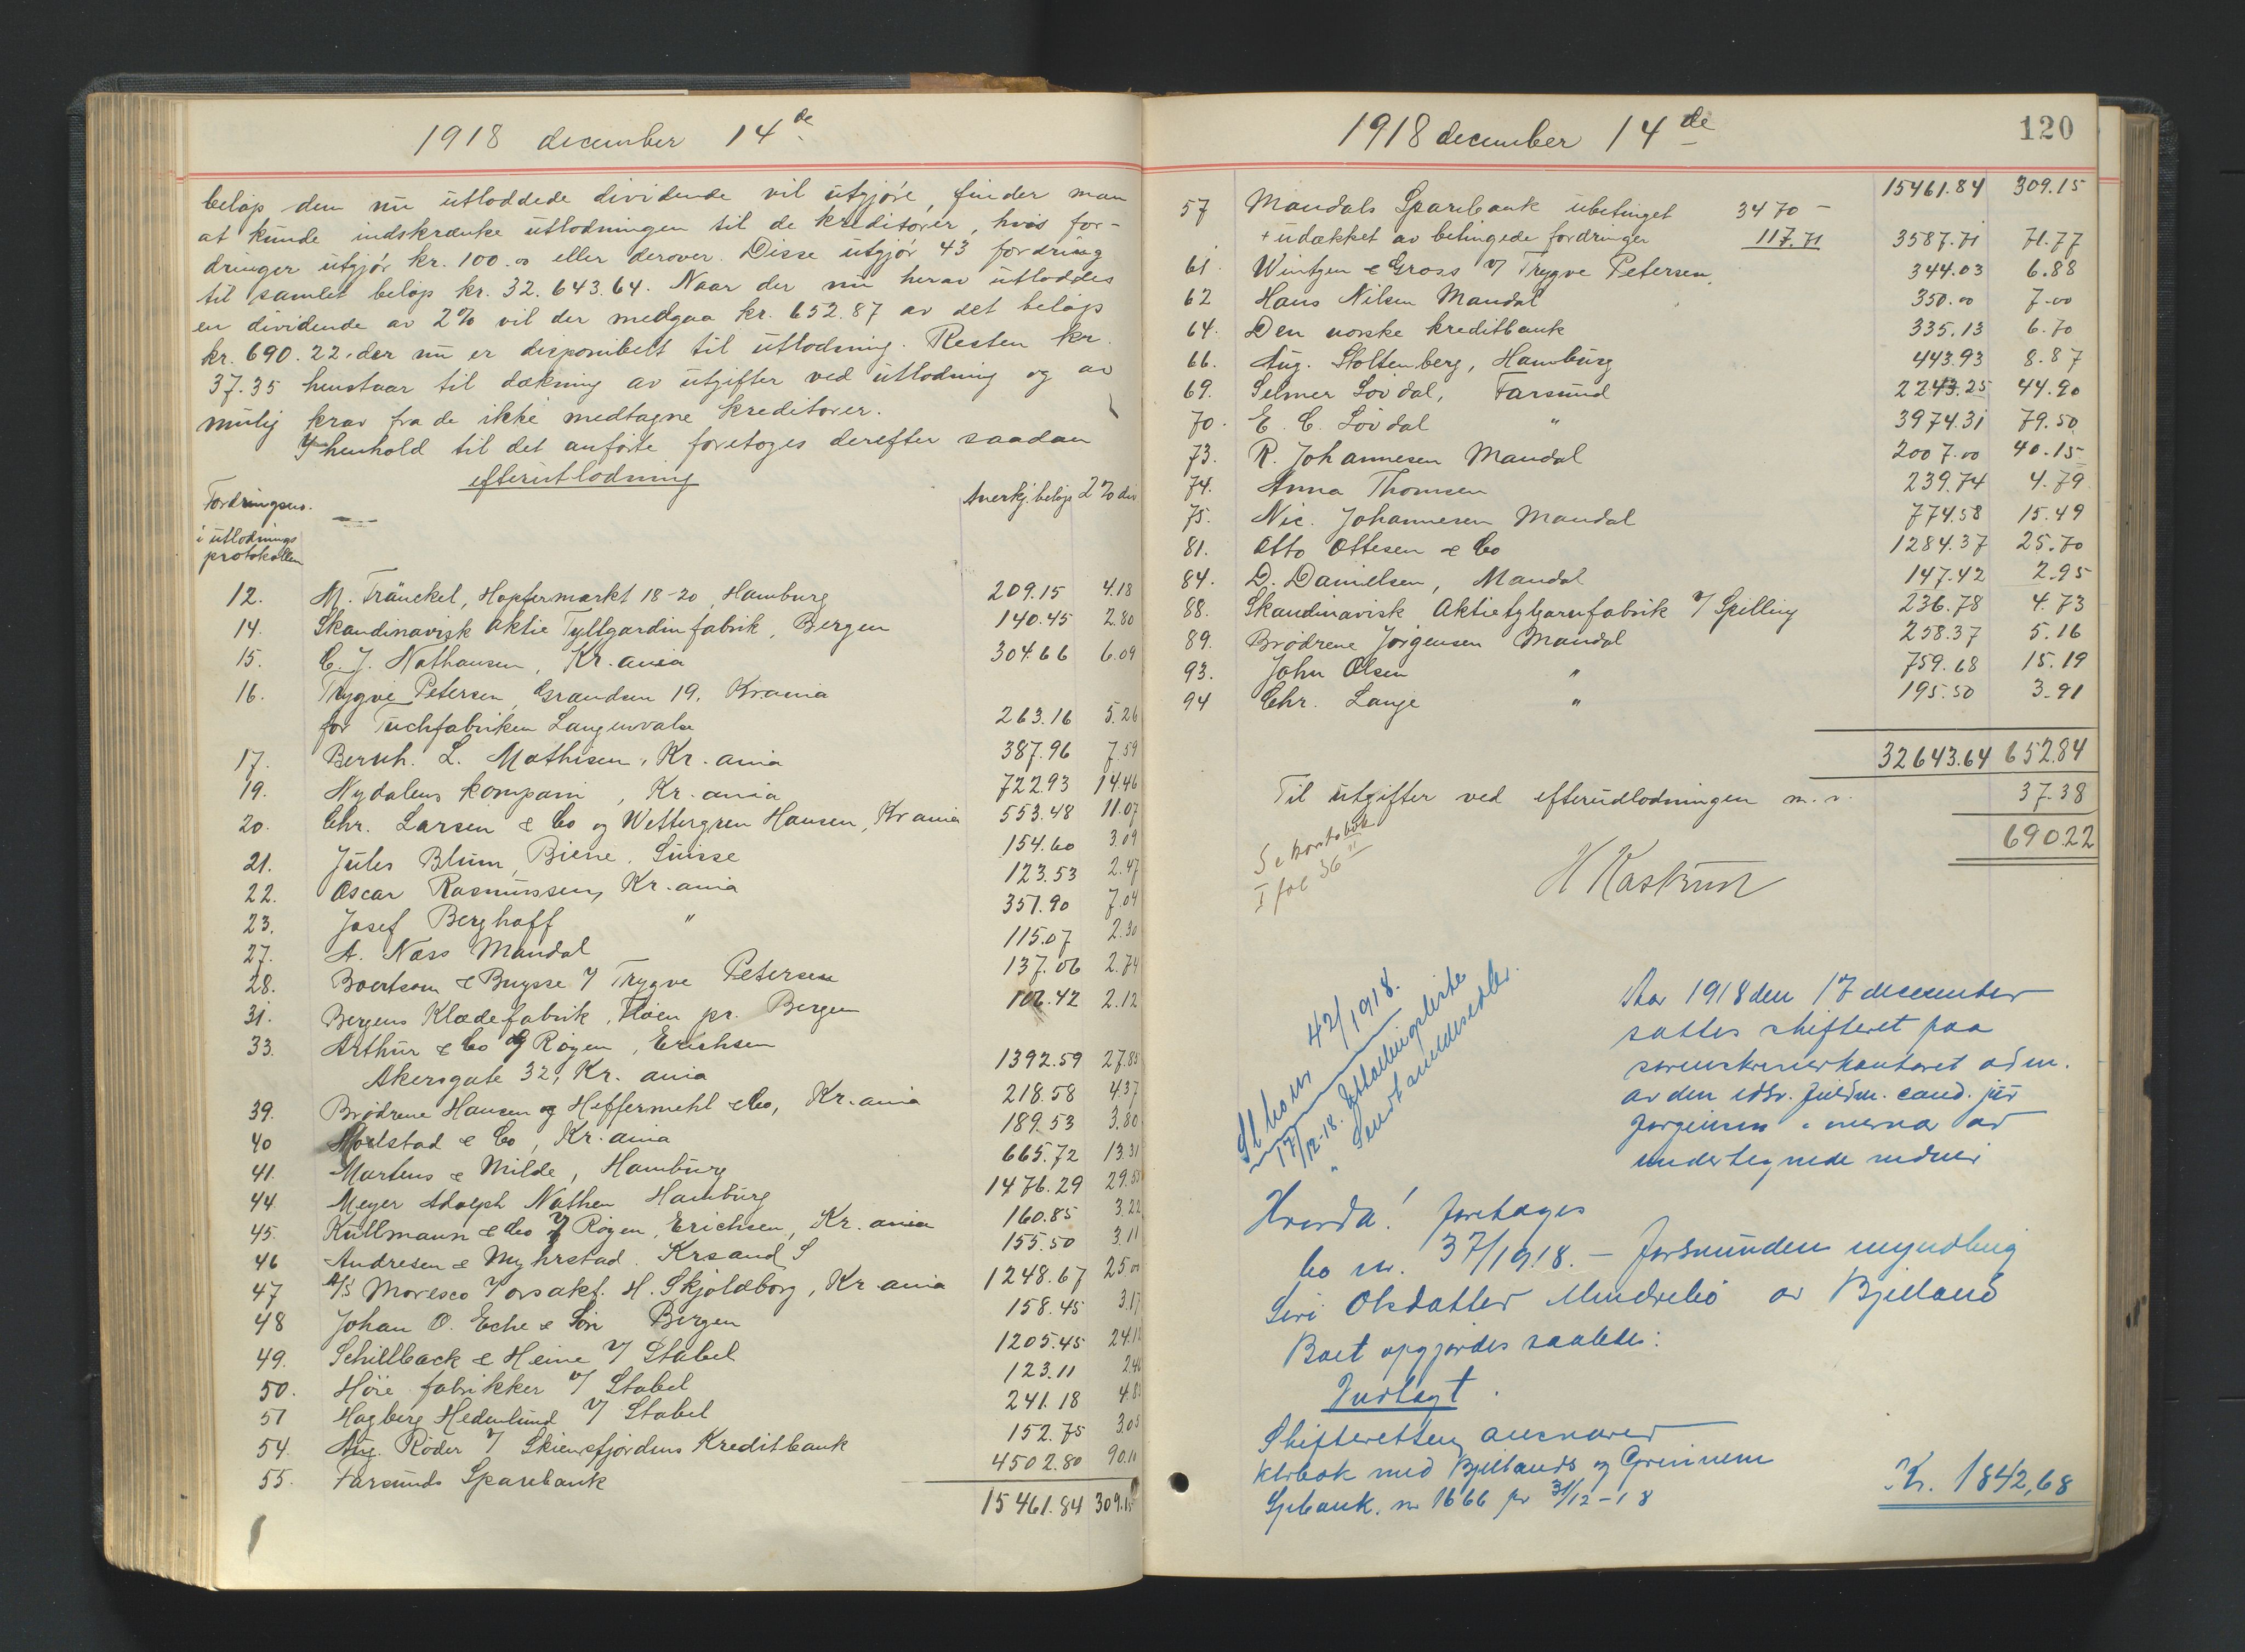 1918 december 14de
beløp den nu utloddede dividende vil utgjøre, finder man
at kunde indskrænke utlodningen til de kreditorer, hvis for-
dringer utgjør kr. 100.00 eller derover. Disse utgjør 43 fordring
til samlet beløp kr. 32.643.64. Naar der nu herav utloddes
en dividende av 2% vil der medgaa kr. 652.87 av det beløp
kr. 690.22 der nu er disponibelt til utlodning. Resten kr.
37.35 henstaar til dækning av utgifter ved utlodning og av
mulig krav fra de ikke medtagne kreditorer.
I henhold til det anførte foretoges derefter saadan
efterutlodning
Fordringsno. i utlodnings protokollen Anerkj. beløp 2% div
12. M. Fränckel, Hopfermarkt 18-20, Hamburg 209.15 4.18
14. Skandinavisk Aktie Tyllgardinfabrik, Bergen 140.45 2.80
15. C. J. Nathansen, Kr.ania 304.66 6.09
16. Trygve Petersen, Grændsen 19, Kr.ania
for Tuchfabriken Langenvalse 263.16 5.26
17. Bernh. L. Mathisen, Kr.ania 387.96 7.59
19. Nydalens kompani, Kr.ania 722.93 14.46
20. Chr. Larsen & Co og Wettergren Hansen, Kr ania 553.48 11.07
21. Jules Blum, Biene, Suisse 154.60 3.09
22. Oscar Rasmussen, Kr.ania 123.53 2.47
23. Josef Berghoff " 351.90 7.04
27. A. Næss Mandal 115.07 2.30
28. Boertsom & Buysse v/ Trygve Petersen 137.06 2.74
31. Bergens Klædefabrik, Floen pr. Bergen 106.42 2.12
33. Arthur & Co v/ Røyen, Erichsen
Akersgate 32, Kr.ania 1392.59 27.85
39. Brødrene Hansen og Heffermehl & Co, Kr.ania 218.58 4.37
40 Morlstad & Co, Kr.ania 189.53 3.80
41. Martens & Milde, Hamburg 665.72 13.31
44. Meyer Adolph Nathen Hamburg 1476.29 29.53
45. Kullmann & Co v/ Røyen, Erichsen, Kr.ania 160.85 3.22
46 Andresen & Myhrstad. Krsand S 155.50 3.11
47 A/S Moresco v/ orsakf. H. Skjoldborg, Kr ania 1248.67 25.00
48 Johan O. Eche & Søn Bergen 158.45 3.17
49. Schillback & Heine v/ Stabel 1205.45 24.12
50. Høie fabrikker v/ Stabel 123.11 2.46
51 Hagberg Hedenlund v/ Stabel 241.18 4.83
54. Aug. Röder v/ Skiensfjordens Kreditbank 152.75 3.05
55. Farsunds Sparebank 4502.80 90.10
15461.84 309.15
1918 december 14de 120
15461.84 309.15
57 Mandals Sparebank ubetinget 3470 -
+ udækket av betingede fordringer 117.71 3587.71 71.77
61. Wintgen & Gross v/ Trygve Petersen 344.03 6.88
62 Hans Nilsen Mandal 350.00 7.00
64. Den norske kreditbank 335.13 6.70
66. Aug. Stoltenberg, Hamburg 443.93 8.87
69. Selmer Løvdal, Farsund 2243.25 44.90
70. E. C. Løvdal " 3974.31 79.50
73. R. Johannesen Mandal 2007.00 40.15
74. Anna Thomsen 239.74 4.79
75. Nic. Johannesen Mandal 774.58 15.49
81. Otto Ottesen & Co 1284.37 25.70
84. D. Danielsen, Mandal 147.42 2.95
88. Skandinavisk Aktietylgarnfabrik v/ Spilling 236.78 4.73
89. Brødrene Jørgensen Mandal 258.37 5.16
93. John Olsen " 759.68 15.19
94 Chr. Lange " 195.50 3.91
32643.64 652.84
Til utgifter ved efterudlodningen m.v. 37.38
690.22
Se kontobok
I fol 36
H Kastrun
42/1918.
17/12-18. Utbetalingsliste
" Sendt anvisningssedler.
Aar 1918 den 17 december
sattes skifteret paa
sorenskriverkontoret adm.
av den edsv. fuldm. cand. jur
Jørgensen i nærvær av
undertegnede vidner
Hvorda! foretages
bo nr. 37/1918. - forsvunden myndling
Siri Olsdatter Mindrebø av Bjelland
Boet opgjordes saaledes:
Indtegt.
Skifterettens ansvarer
ktrbok med Bjellands og Grinnem
Spbank. nr 1666 pr 31/12-18 Kr. 1842,68